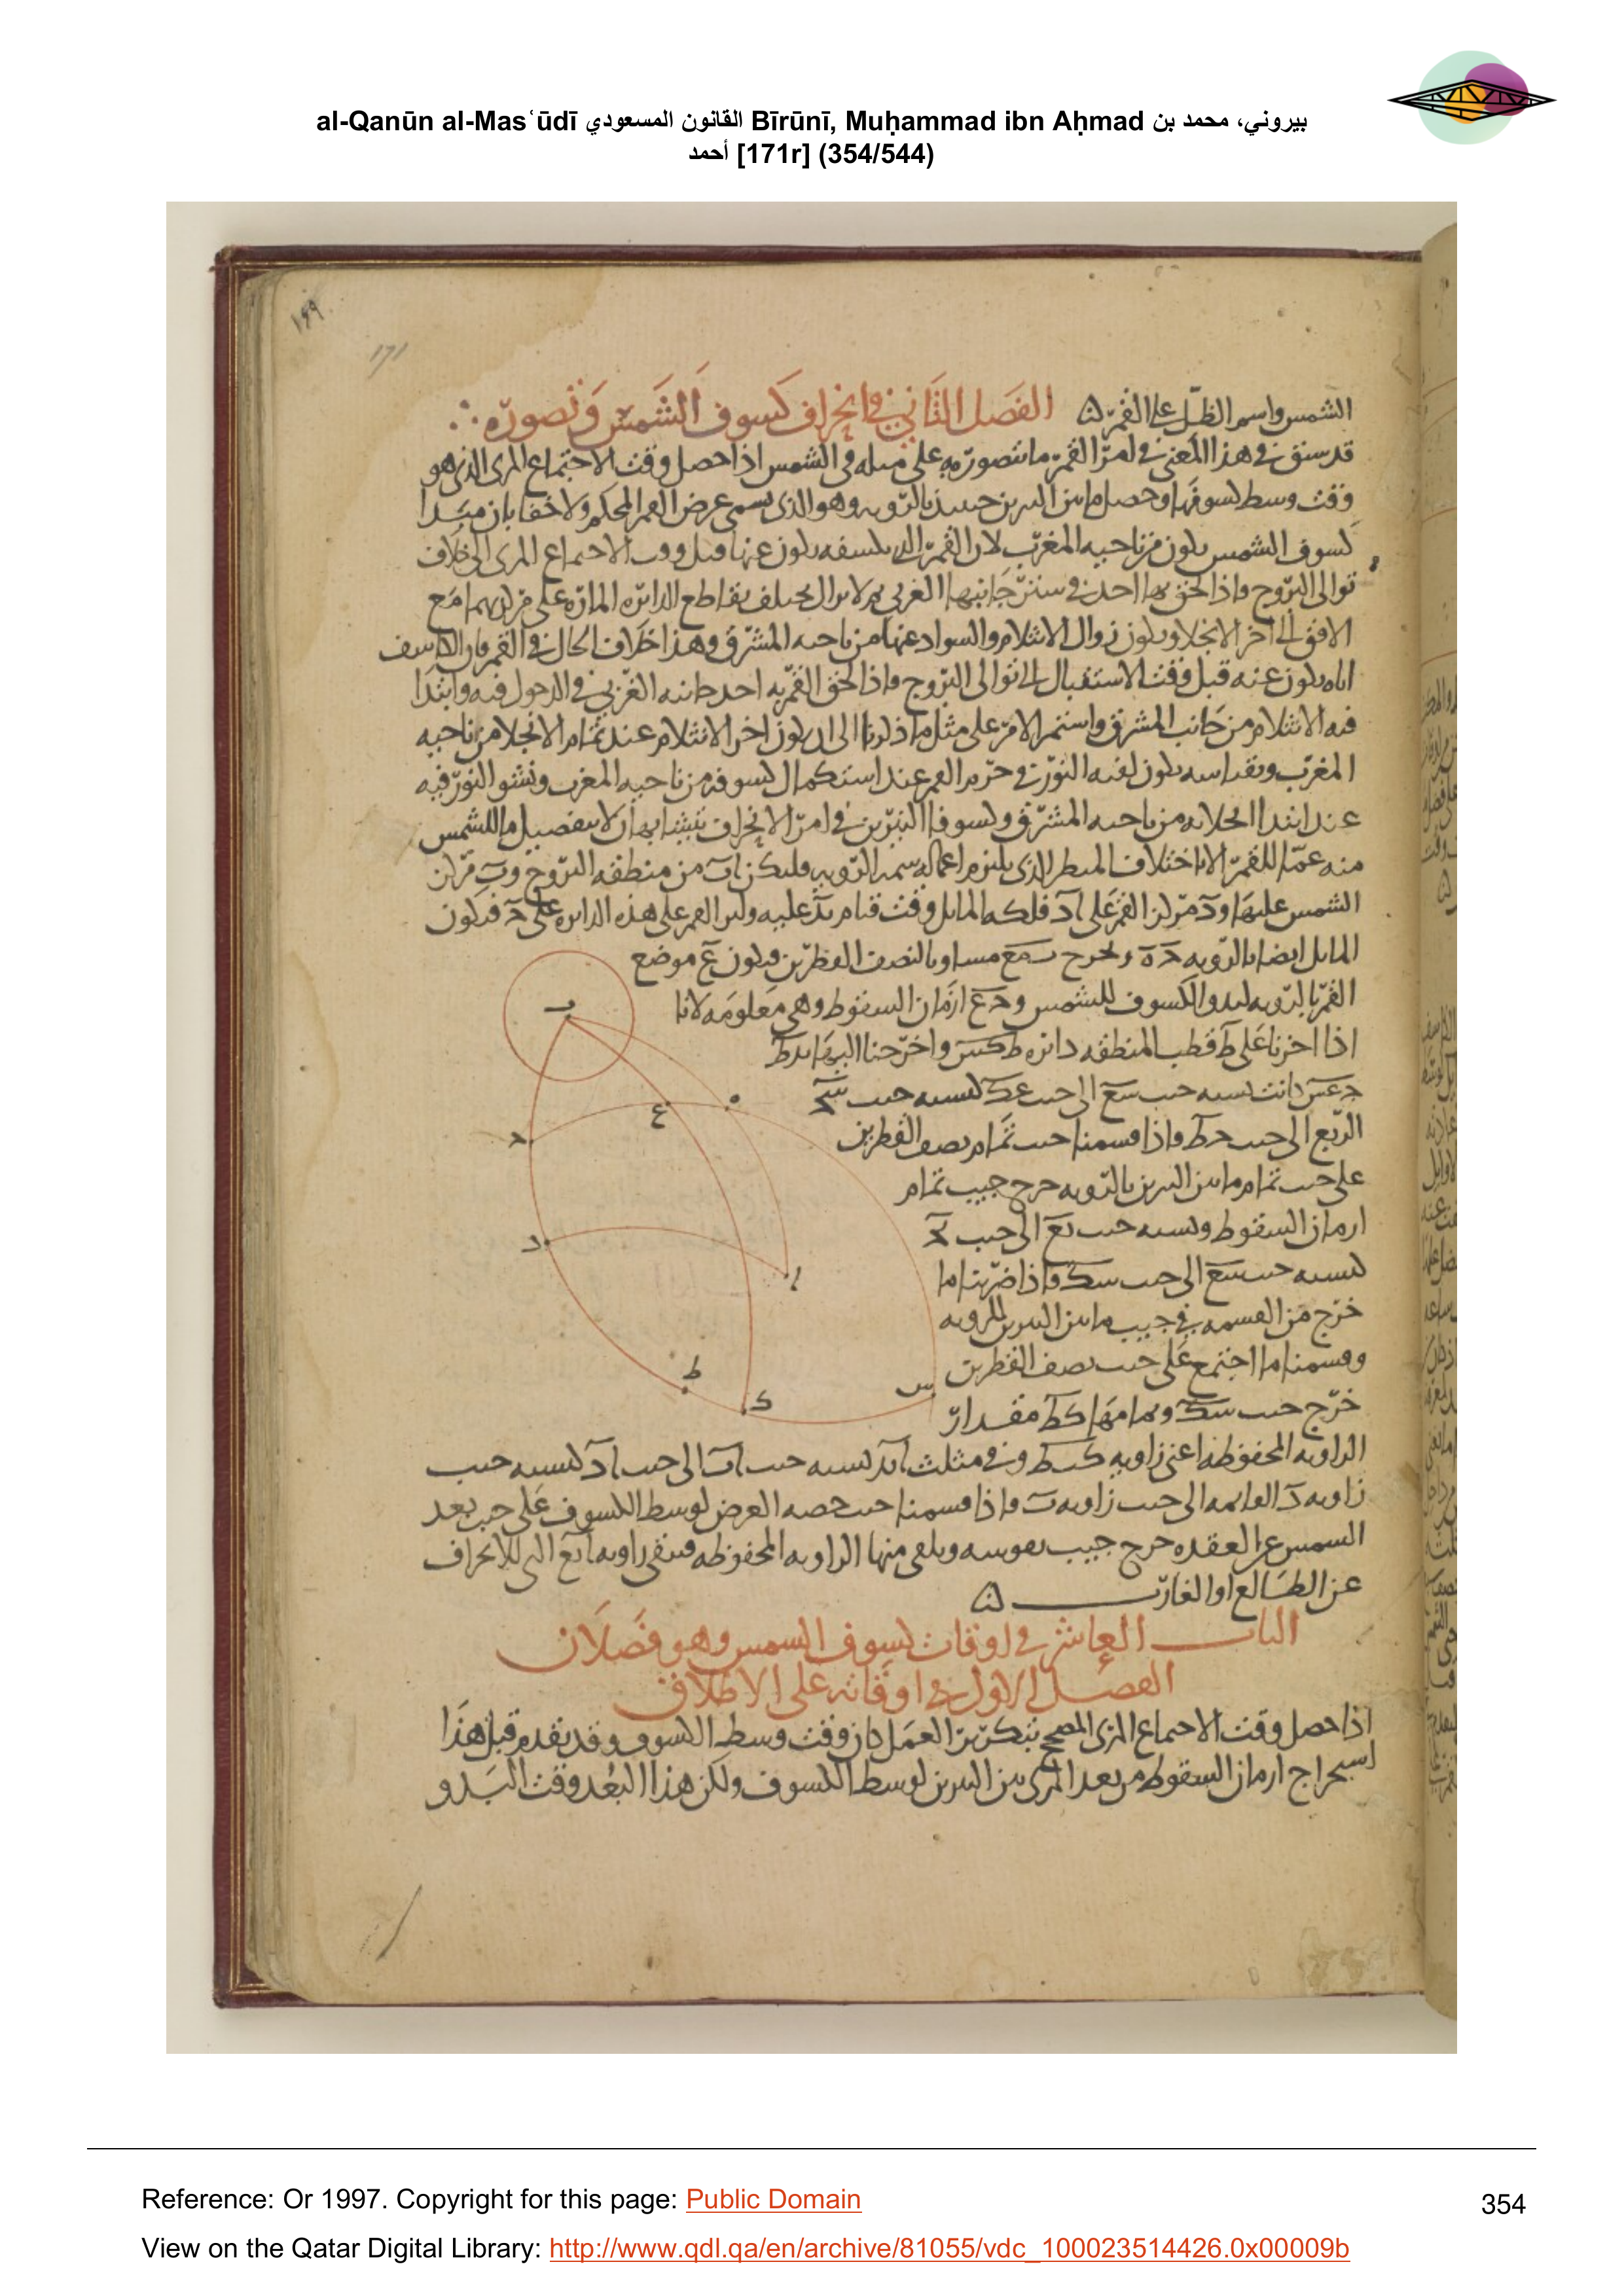 al-Qanūn al-Masʻūdī القانون المسعودي Bīrūnī, Muḥammad ibn Aḥmad بيروني، محمد بن
أحمد [171r] (354/544)
١٦٩
171
الشمس واسم الظل على القمر
الفصل الثاني في انحراف كسوف الشمس وتصوره
قد سبق في هذا المعنى في امر القمر ما نتصور به على مثله في الشمس اذا حصل وقت الاجتماع المرى الذى هو
وقت وسط كسوفها وحصل ما بين النيرين حينئذ بالرويه وهو الذى يسمى عرض القمر المحكم ولا خفا بان مبدا
كسوف الشمس يكون من ناحيه المغرب لان القمر الذى يكسفها يكون عنها قبل وقت الاجتماع المرى الى خلاف
توالى البروج واذا لحق بها اخذ في ستر جانبها الغربي ثم لا يزال يختلف تقاطع الدايره الماره على مركزيهما مع
الافق الى اخر الانجلا ويكون زوال الانثلام والسواد عنها من ناحيه المشرق وهذا خلاف الحال في القمر فان الكاسف
اياه يكون عنه قبل وقت الاستقبال الى توالى البروج واذا لحق القمر به اخذ جانبه الغربي في الدخول فيه وابتدا
فيه الانثلام من جانب المشرق واستمر الامر على مثل ما ذكرنا الى ان يكون اخر الانثلام عند تمام الانجلا من ناحيه
المغرب وبقياسه يكون بقيه النور في جرم القمر عند استكمال كسوفه من ناحيه المغرب ونشو النور فيه
عند ابتدا انجلائه من ناحيه المشرق وكسوفا النيرين في امر الانحراف يتشابهان لا ينفصل ما للشمس
منه عما للقمر الا باختلاف المنظر الذى يلزم اعماله سمه الرويه فليكن اب من منطقه البروج وب مركز
الشمس عليها ود مركز القمر على اد فلكه المايل وقت قيام بد عليه وليرا القمر على هذه الدايره على ح فيكون
المايل ايضا بالرويه ح ه ونخرج ب ع مساويا لنصف القطرين فيكون ع موضع
القمر بالرويه لبدو الكسوف للشمس وح ع ازمان السقوط وهي معلومه لانا
اذا ادرنا على ط قطب المنطقه دايره ط ك س واخرجنا اليها ب د ط
ح ع س كانت نسبه جيب س ع الى جيب ع ك كنسبه جيب س ح
الربع الى جيب ح ط واذا قسمنا جيب تمام نصف القطرين
على جيب تمام ما بين النيرين بالرويه خرج جيب تمام
ازمان السقوط ونسبه جيب ب ع الى جيب ب ح
كنسبه جيب س ع الى جيب س ك فاذا ضربنا ما
خرج من القسمه في جيب ما بين النيرين للرويه
وقسمنا ما اجتمع على جيب نصف القطرين
خرج جيب س ك وتمامها ك ط مقدار
الزاويه المحفوظه اعنى زاويه ك ب ط وفي مثلث ا ب د نسبه جيب اب الى جيب اد كنسبه جيب
زاويه د القايمه الى جيب زاويه ب واذا قسمنا جيب حصه العرض لوسط الكسوف على جيب بعد
الشمس عن العقده خرج جيب نقوسه ونلقى منها الزاويه المحفوظه فتبقى زاويه ا ب ع التى للانحراف
عن الطالع او الغارب
الباب العاشر في اوقات كسوف الشمس وهو فصلان
الفصل الاول في اوقاته على الاطلاق
اذا حصل وقت الاجتماع المرى المصحح بتكرير العمل كان وقت وسط الكسوف وقد تقدم قبل هذا
استخراج ازمان السقوط من بعد المرى بين النيرين لوسط الكسوف ولكن هذا البعد وقت البدو
ب
ه
ع
ح
د
ا
ط
ك
س
Reference: Or 1997. Copyright for this page: Public Domain
354
View on the Qatar Digital Library: http://www.qdl.qa/en/archive/81055/vdc_100023514426.0x00009b